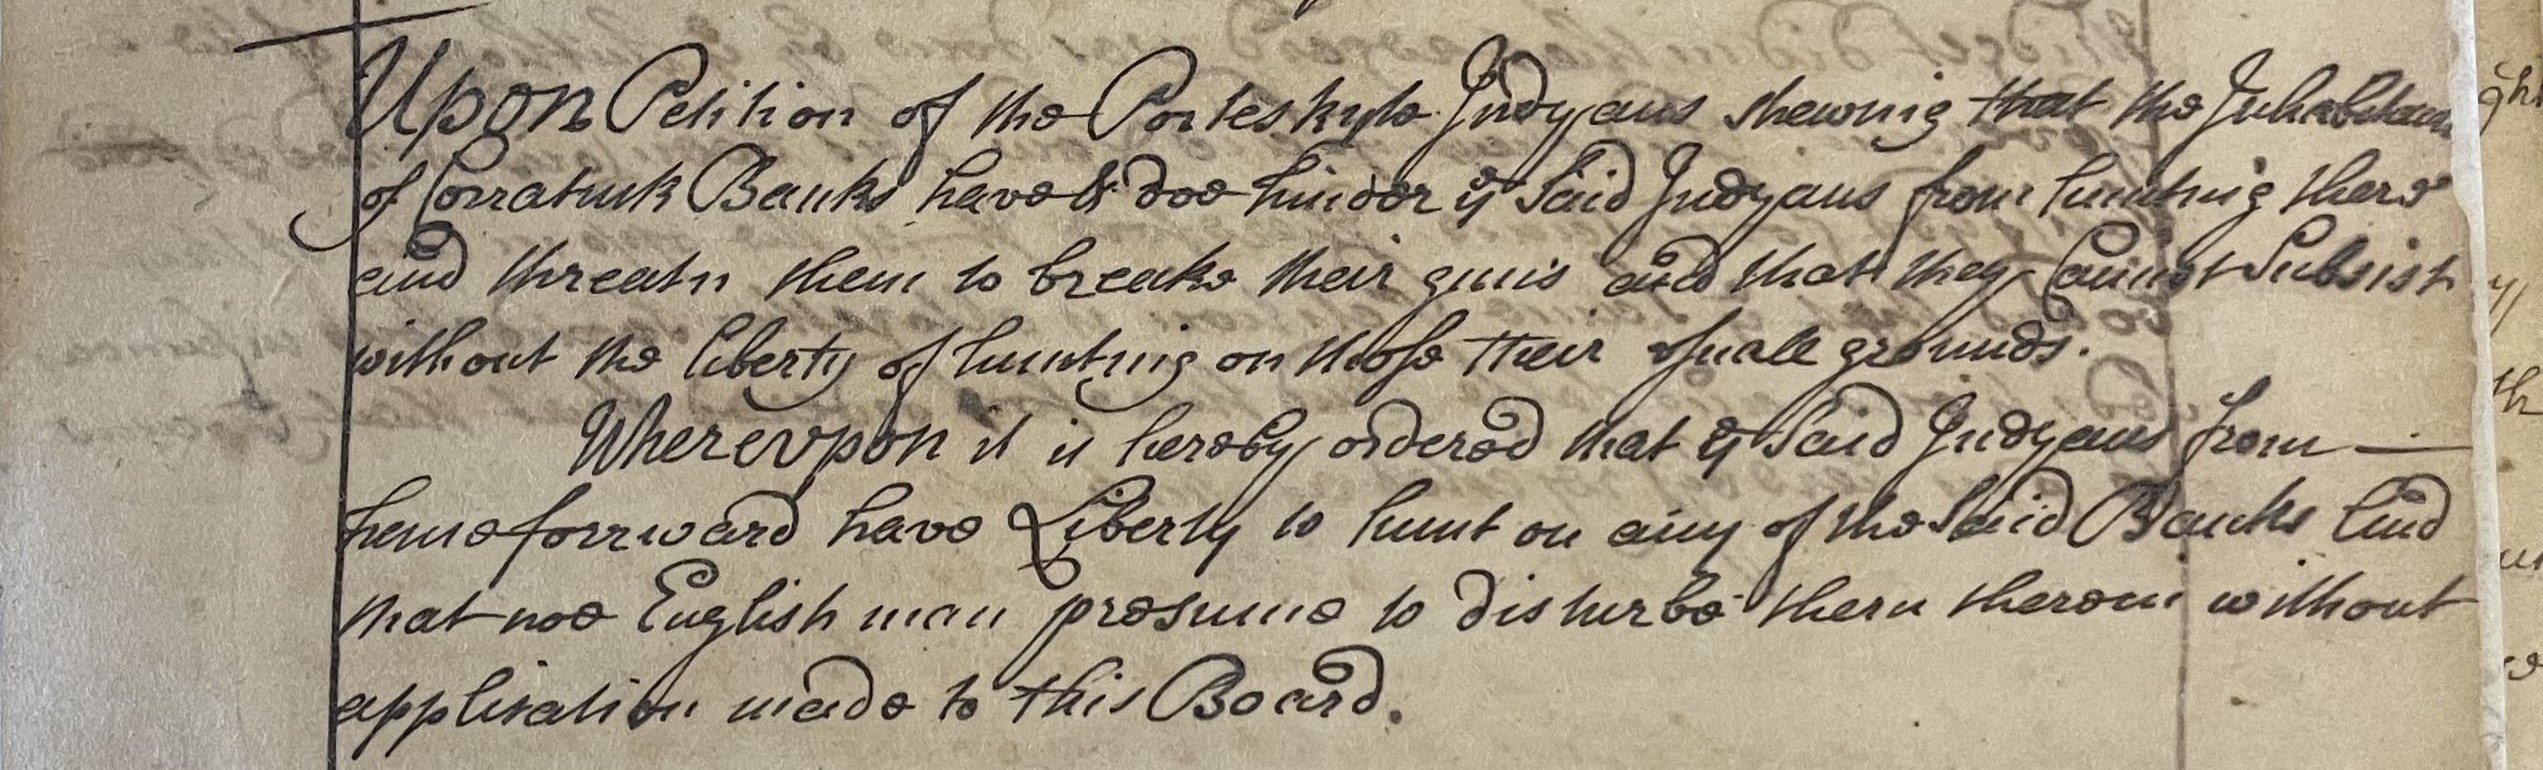 Upon Petition of the Porteskyte Indyans shewing that the Inhabitan
of Corratuck Banks have & doe hinder ye Said Indyans from hunting there
and threatn them to breake their guns and that they Cannot Subsist
without the liberty of hunting on those their usuall grounds.
Wherevpon it is hereby ordered that ye Said Indyans from
hence forrward have Liberty to hunt on any of the Said Banks And
that noe English man presume to disturbe them therein without
application made to this Board.